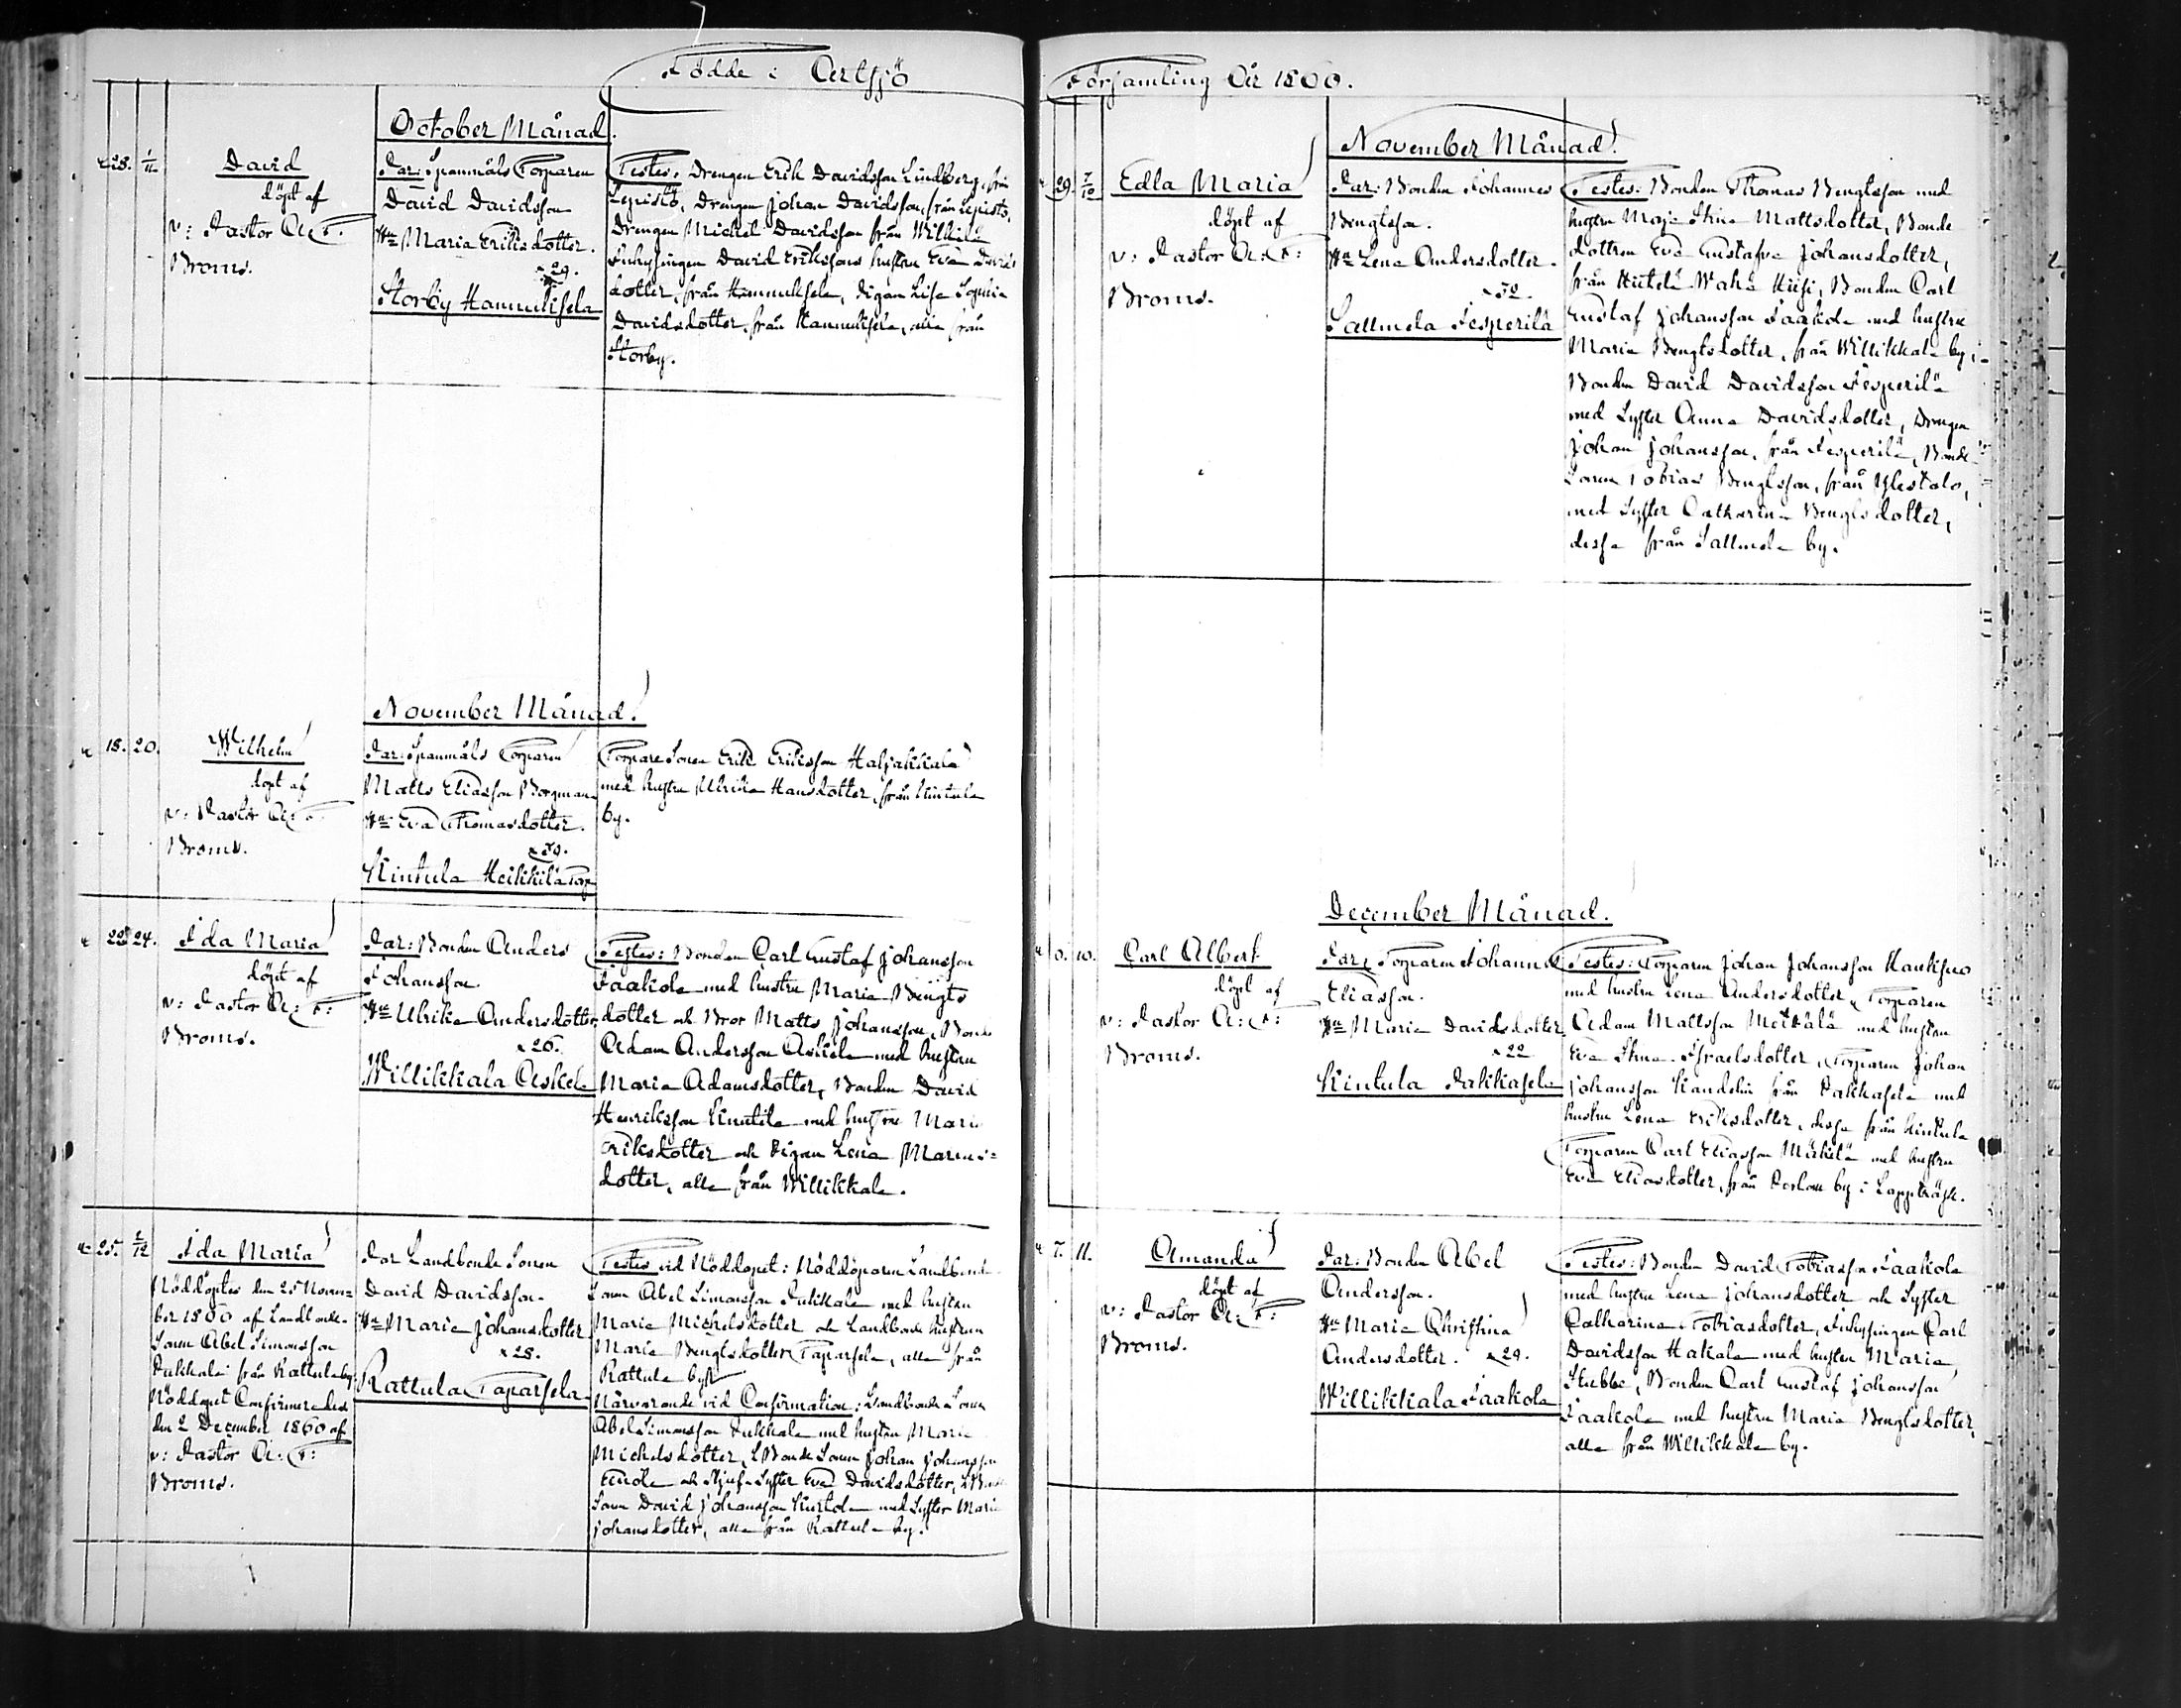 Födde i Artsjö
October Månad.
28. 1/11
David
döpt af
v: Pastor A: F:
Broms.
Par: Spanmåls Torparen
David Davidsson
Hu Maria Eriksdotter.
29.
Storby Hannuksela
Testes: Drengen Erik Davidsson Lindberg, från
Lepistö, Drengen Johan Davidsson, från Lepistö,
Drengen Michel Davidsson från Wilkilä
Inhysingen David Erikssons hustru Eva Davids
dotter, från Hannuksela, Pigan Lisa Sophia
Davidsdotter, från Hannuksela, alla från
Storby.
November Månad.
18. 20.
Wilhelm
döpt af
v: Pastor A: F:
Broms.
Par: Spanmåls Torparen
Matts Eliasson Borgman
Hu Eva Thomasdotter.
Kinttula Heikkilä Torp
Torpare Sonen Erik Eriksson Haljakkala
med hustru Ulrika Hansdotter, från Kinttula
by.
22. 24.
Ida Maria
döpt af
v: Pastor A: F:
Broms.
Par: Bonden Anders
Johansson.
Hu Ulrika Andersdotter
26.
Willikkala Askela
Testes: Bonden Carl Gustaf Johansson
Jaakola med hustru Maria Bengts
dotter och Bror Matts Johansson, Bonde
Adam Andersson Askela med hustru
Maria Adamsdotter, Bonden David
Henriksson Knutila med hustru Maria
Eriksdotter och Pigan Lena Marcus=
dotter, alla från Willikkala.
25. 2/12
Ida Maria
Nöddöptes den 25 Novem=
ber 1860 af Landbonde
Sonen Abel Simonsson
Pukkala från Rattula by.
Nöddopet Confirmerades
den 2 December 1860 af
v: Pastor A: F:
Broms.
Par Landbonde Sonen
David Davidsson.
Hu Maria Johansdotter
28.
Rattula Taparsela
Testes vid Nöddopet: Nöddöparen Landbonde
Sonen Abel Simonsson Pukkala med hustru
Maria Michelsdotter och Landbonde hustrun
Maria Bengtsdotter Taparsela, alla från
Rattula by.
Närvarande vid Confirmation: Landbonde Sonen
Abel Simonsson Pukkala med hustru Maria
Michelsdotter, LBonde Sonen Johan Johansson
och Styfsyster Eva Davidsdotter, LBonde
Sonen David Johansson med Syster Maria
Johansdotter, alla från Rattula by.
Församling År 1860.
November Månad.
29. 7/12
Edla Maria
döpt af
v: Pastor A: F:
Broms.
Par: Bonden Johannes
Bengtsson.
Hu Lena Andersdotter.
Sallmela Jesperilä
Testes: Bonden Thomas Bengtsson med
hustru Maja Stina Mattsdotter, Bonde
dottren Eva Gustafva Johansdotter,
från Hietala Bonden Carl
Gustaf Johansson Jaakola med hustru
Maria Bengtsdotter, från Willikkala by,
Bonden David Davidsson Jesperilä
med Syster Anna Davidsdotter, Drengen
Johan Johansson, från Jesperilä, Bonde
Sonen Tobias Bengtsson, från Ylestalo,
med Syster Catharina Bengtsdotter,
dessa från Sallmela by.
December Månad.
10.
Carl Albert
döpt af
v: Pastor A: F:
Broms.
Par: Torparen Johannes
Eliasson.
Hu Maria Davidsdotter
22
Kinttula Pakkasela
Testes: Torparen Johan Johansson Kauhisuo
med hustru Lena Andersdotter, Torparen
Adam Mattsson Mettälä med hustru
Eva Stina Israelsdotter, Torparen Johan
Johansson Kandelin från Pakkasela med
hustru Lena Eriksdotter, dessa från Kinttula
Torparen Carl Eliasson Mickilä med hustru
Eva Eliasdotter, från Porlom by i Lappträsk.
7. 11.
Amanda
döpt af
v: Pastor A: F:
Broms.
Par: Bonden Abel
Andersson.
Hu Maria Christina
Andersdotter. 29.
Willikkala Jaakola
Testes: Bonden David Tobiasson Jaakola
med hustru Lena Johansdotter och Syster
Catharina Tobiasdotter, Inhysingen Carl
Davidsson Hakala med hustru Maria
Stubbe, Bonden Carl Gustaf Johansson
Jaakola med hustru Maria Bengtsdotter,
alla från Willikkala by.